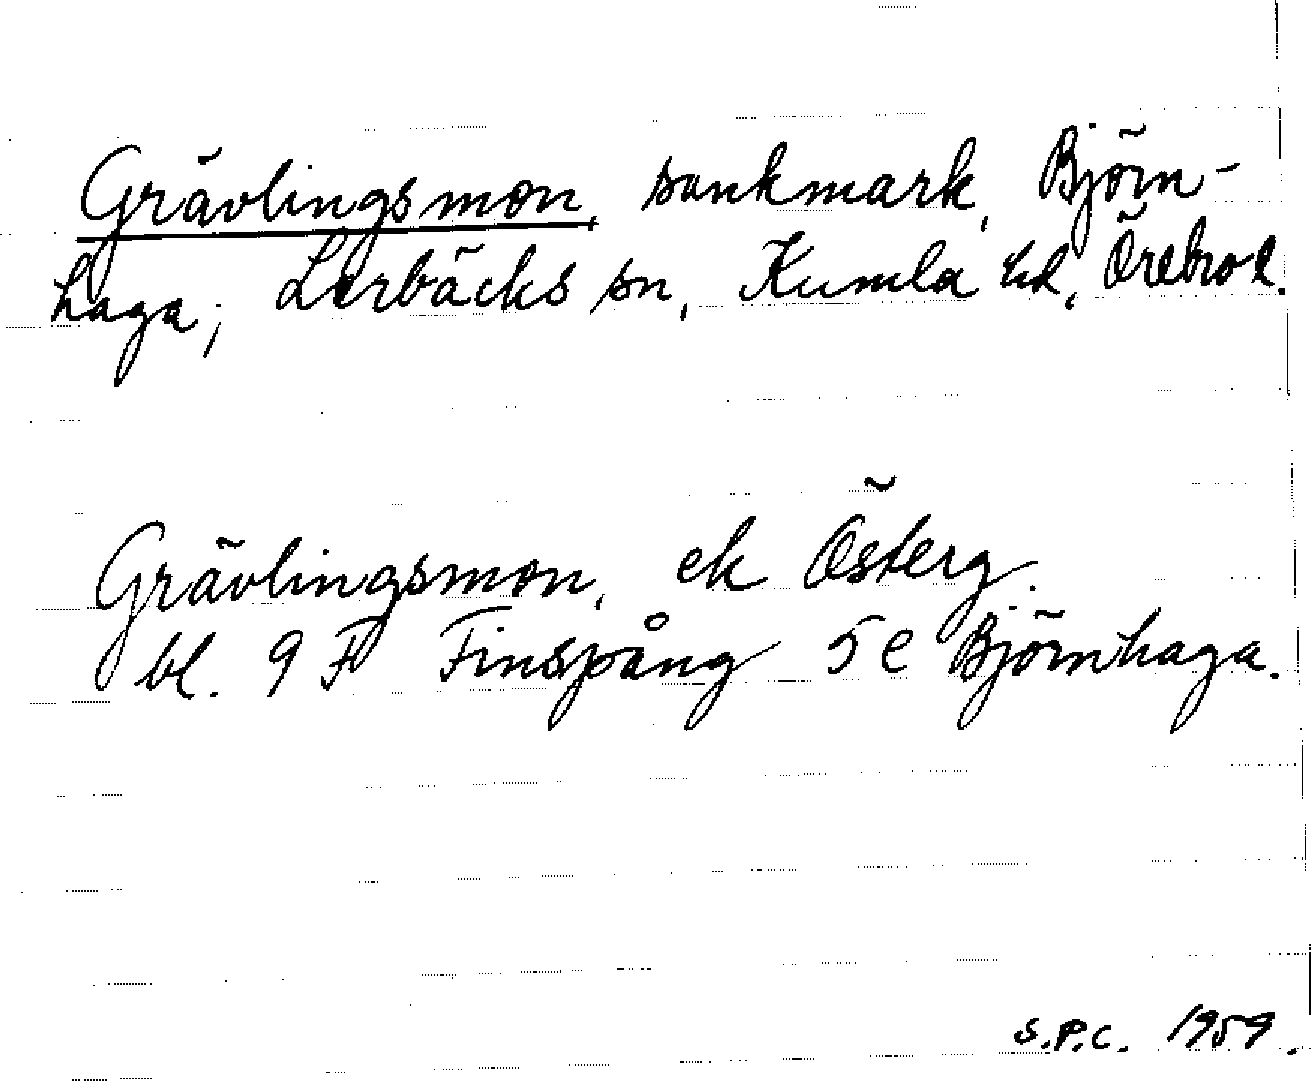 Grävlingsmon, sankmark, Björn-
haga, Lerbäcks sn, Kumla hd, Örebro l.
Grävlingsmon, ek Österg.
bl. 9 F Finspång 5 e Björnhaga.
S.P.C. 1959.